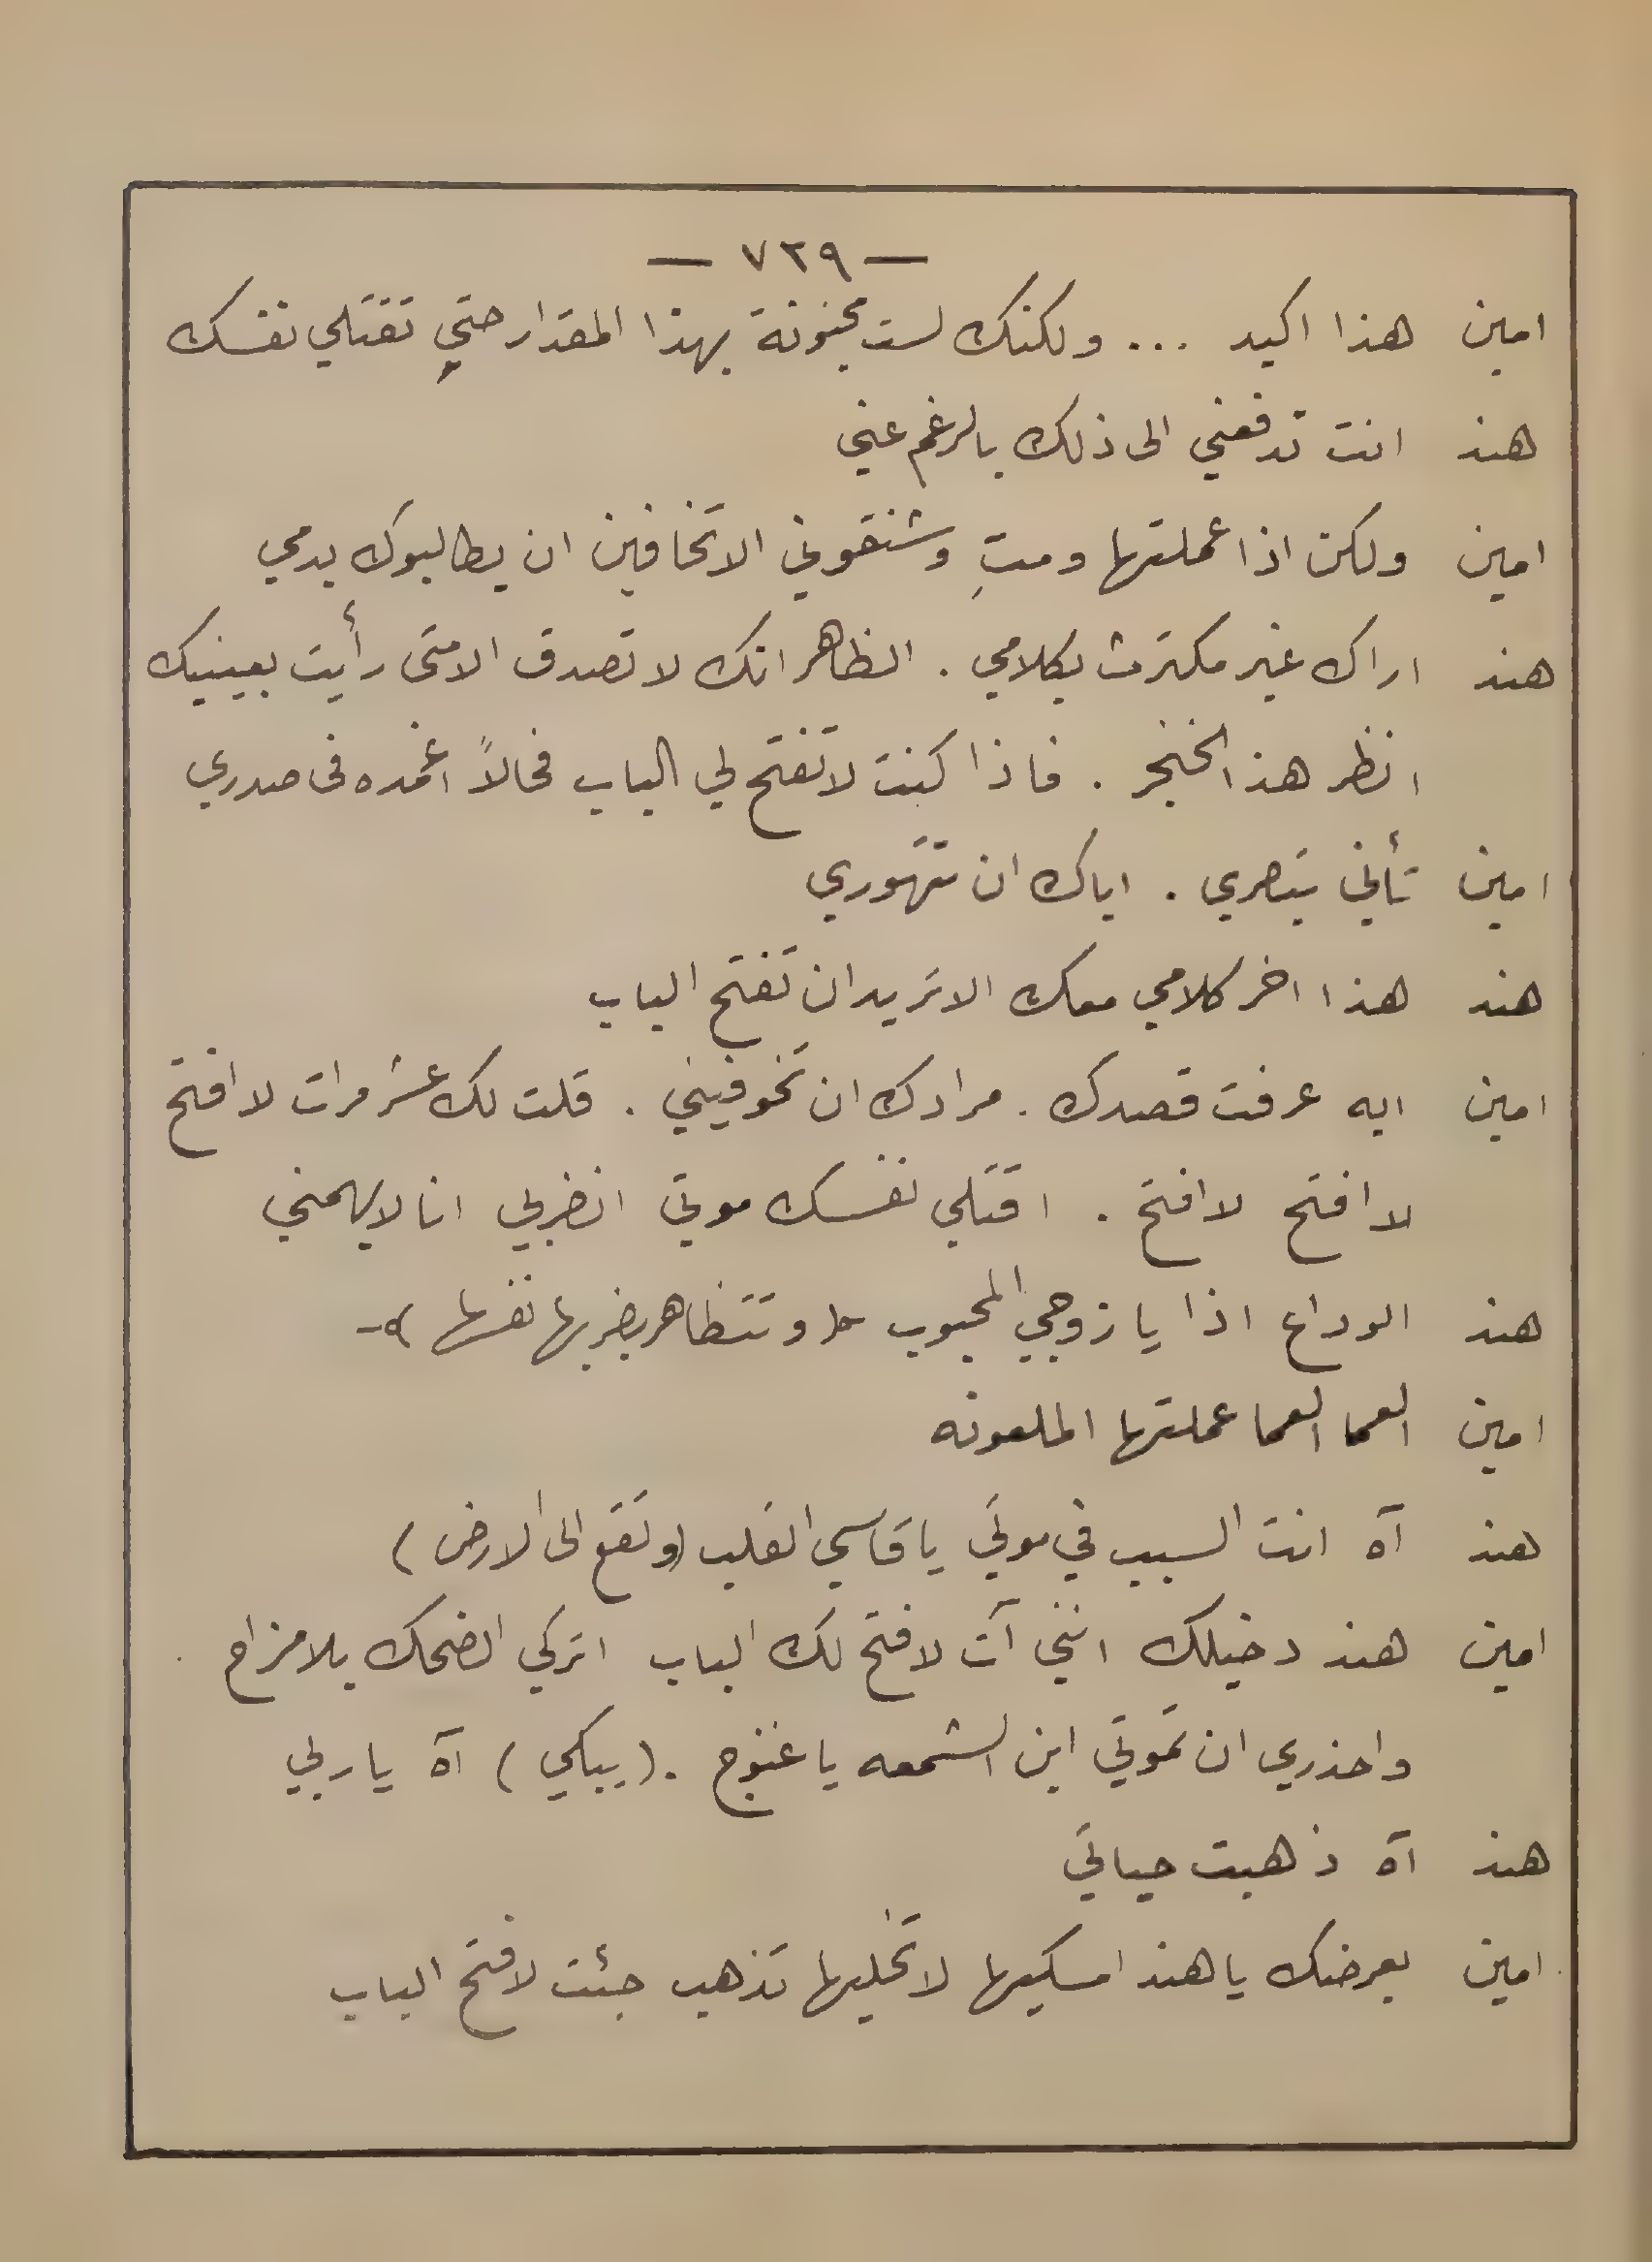 — ٧٢٩ —
امين هذا اكيد ... ولكنك لست مجنونة بهذا المقدار حتي تقتلي نفسك
هند انت تدفعني الى ذلك بالرغم عني
امين ولكن اذا عملتها ومتِ وشنقوني الا تخافين ان يطالبوك بدمي
هند اراك غير مكترث بكلامي . الظاهر انك لا تصدق الا متى رأيت بعينيك
انظر هذا الخنجر . فاذا كنت لا تفتح لي الباب فحالاً اغمده فى صدري
امين تأني تبصري . اياك ان تتهوري
هند هذا اخر كلامي معك الا تريد ان تفتح الباب
امين ايه عرفت قصدك . مرادك ان تخوفيني . قلت لك عشر مرات لا افتح
لا افتح لا افتح . اقتلي نفسك موتي انضربي انا لا يهمني
هند الوداع اذا يا زوجي المحبوب ( وتتظاهر بضربها نفسها )
امين العما العما عملتها الملعونه
هند آه انت السبب في موتي يا قاسي القلب (وتقع الى الارض )
امين هند دخيلك انني آت لافتح لك الباب اتركي الضحك بلا مزاح
واحذري ان تموتي اين الشمعه يا غنوج . (يبكي ) آه يا ربي
هند آه ذهبت حياتي
امين بعرضك يا هند امسكيها لا تخليها تذهب جئت لافتح الباب